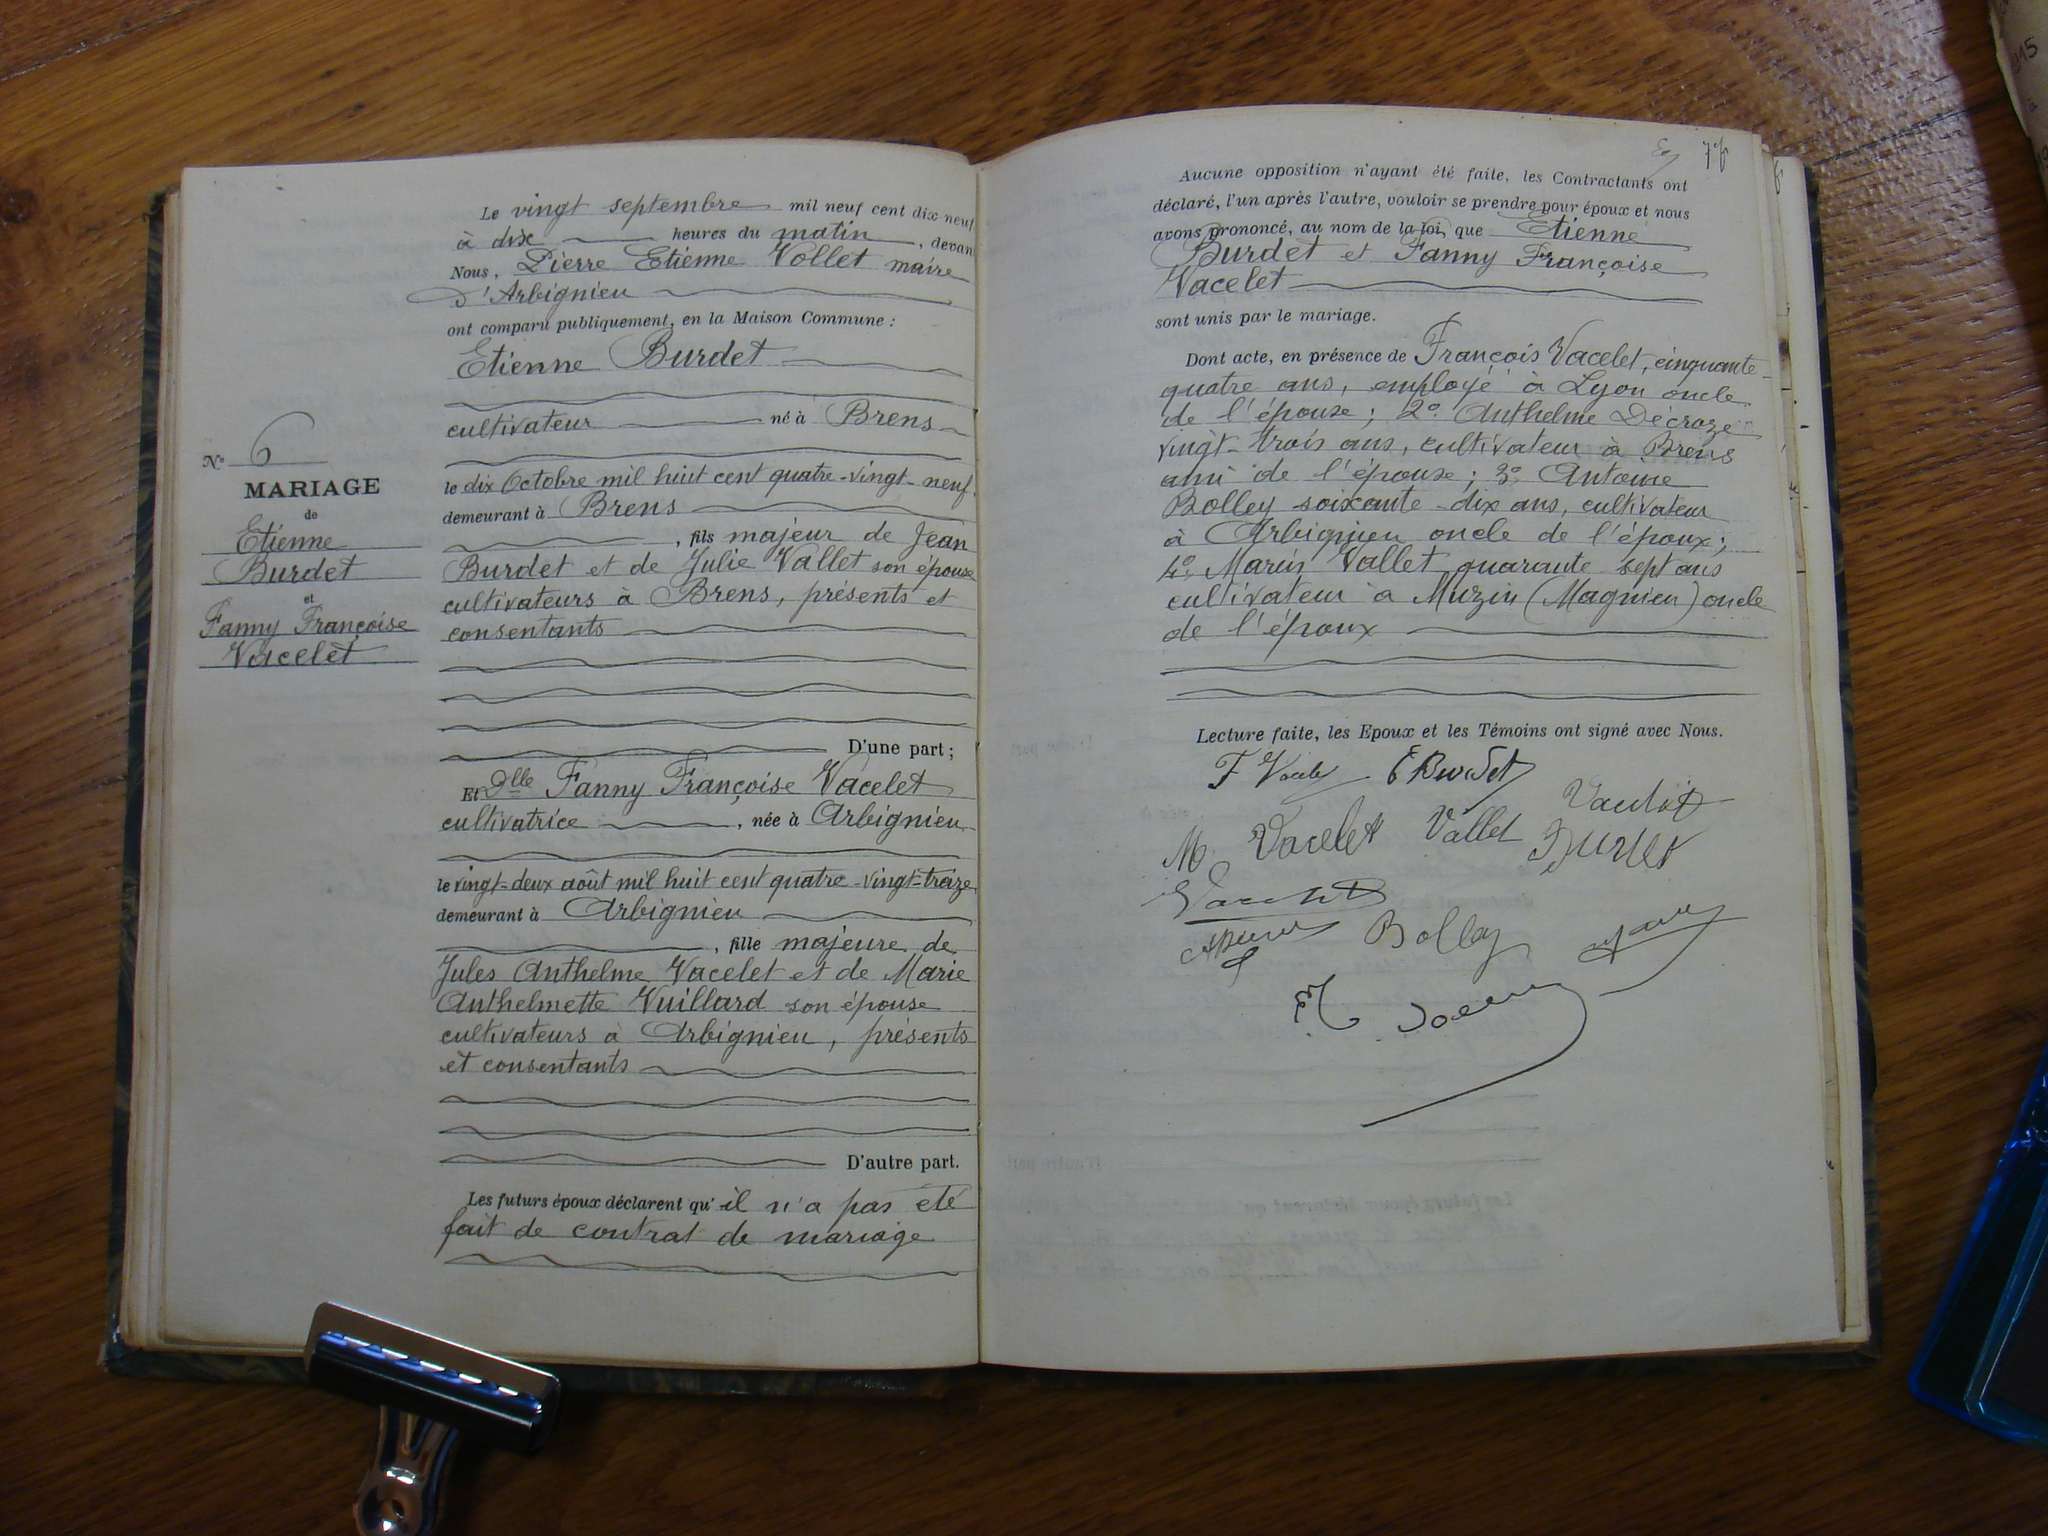 Le vingt septembre mil neuf cent dix-neuf
à dix heures du matin, devan
Nous, Pierre Etienne Vollet maire
d'Arbignieu
ont comparu publiquement, en la Maison Commune :
Etienne Burdet
cultivateur né à Brens
le dix Octobre mil huit cent quatre-vingt-neuf
demeurant à Brens
, fils majeur de Jean
Burdet et de Julie Vallet son épouse
cultivateurs à Brens, présents et
consentants
D'une part ;
Et Dlle Fanny Françoise Vacelet
cultivatrice, née à Arbignieu
le vingt-deux août mil huit cent quatre-vingt-treize
demeurant à Arbignieu
, fille majeure de
Jules Anthelme Vacelet et de Marie
Anthelmette Vuillard son épouse
cultivateurs à Arbignieu, présents
et consentants
D'autre part.
Les futurs époux déclarent qu'il n'a pas été
fait de contrat de mariage
N° 6
MARIAGE
de
Etienne
Burdet
et
Fanny Françoise
Vacelet
Aucune opposition n'ayant été faite, les Contractants ont
déclaré, l'un après l'autre, vouloir se prendre pour époux et nous
avons prononcé, au nom de la loi, que Etienne
Burdet et Fanny Françoise
Vacelet
sont unis par le mariage.
Dont acte, en présence de François Vacelet, cinquante-
quatre ans, employé à Lyon oncle
de l'épouse ; 2° Anthelme Décroze
vingt-trois ans, cultivateur à Brens
ami de l'épouse ; 3° Antoine
Bolley soixante-dix ans, cultivateur
à Arbignieu oncle de l'époux ;
4° Marius Vallet quarante sept ans
cultivateur à Muzin (Magnieu) oncle
de l'époux
Lecture faite, les Epoux et les Témoins ont signé avec Nous.
E Burdet
M Vacelet Vallet
Burdet
Bolley